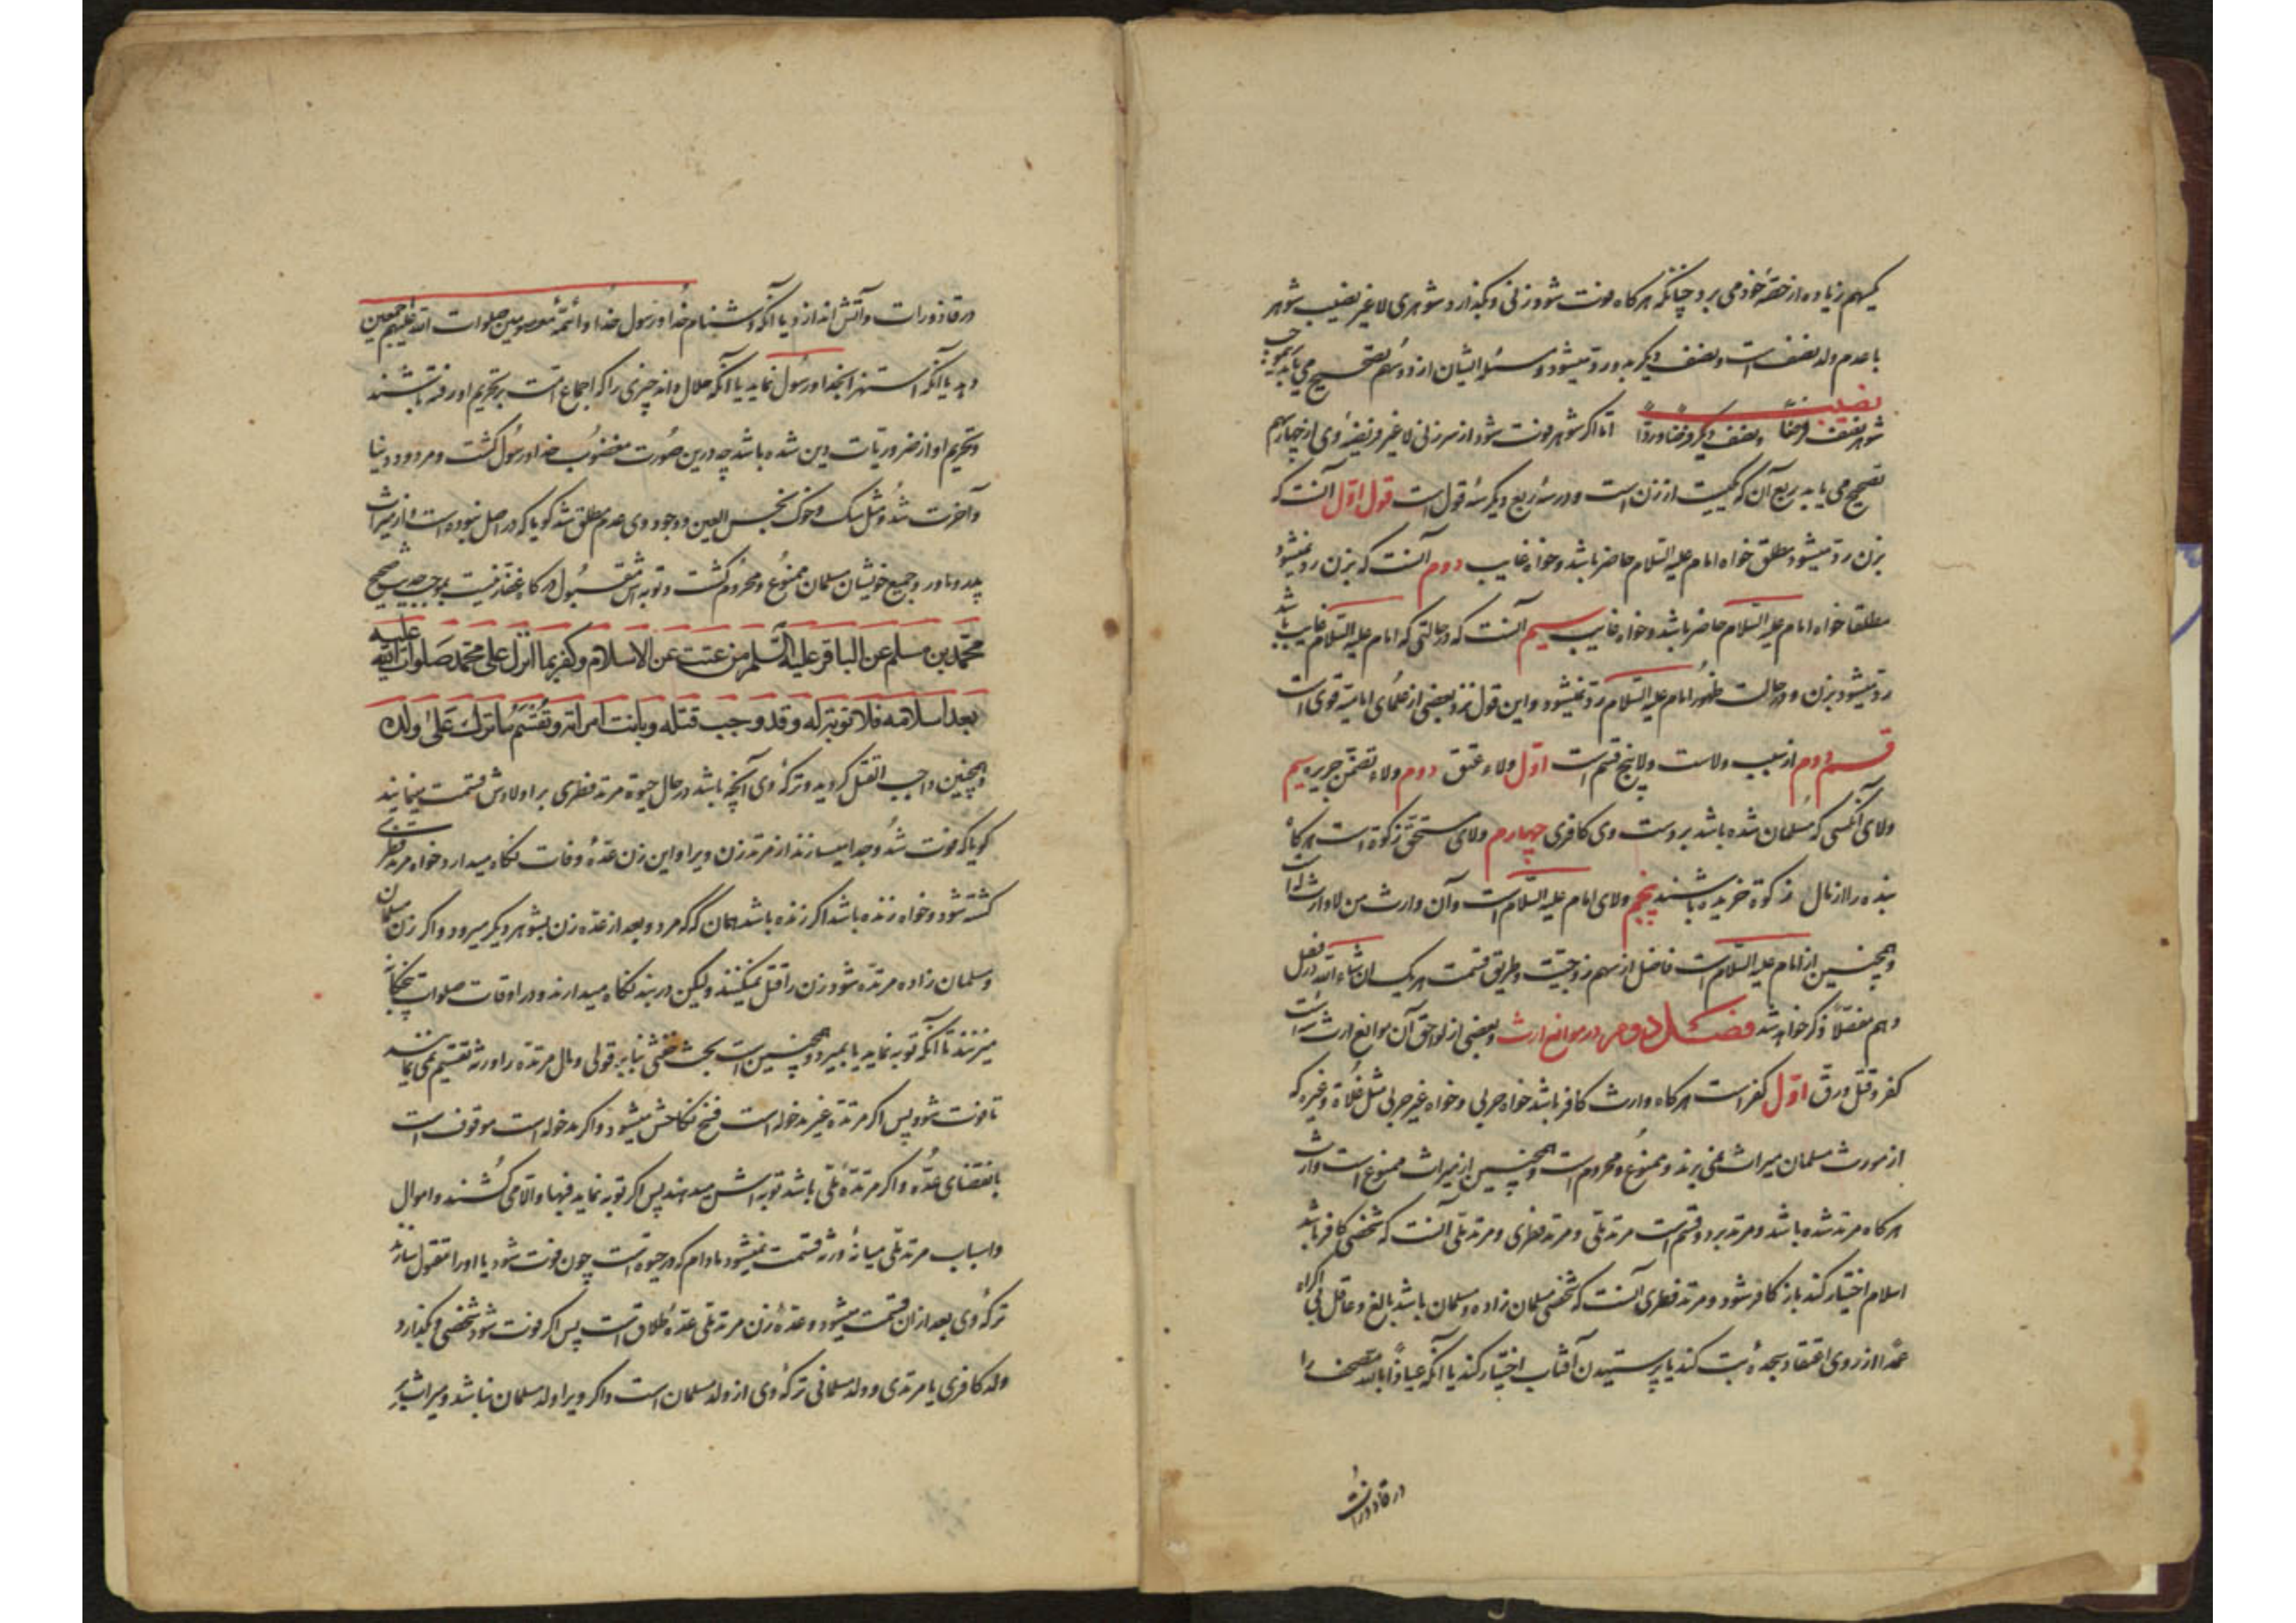 کیهم زیاده از حصّهٔ خود می برد چنانکه هرکاه فوت شود زنی و بکذارد شوهری لا غیر نصیب شوهر
با عدم ولد نصف است و نصف دیکر بدو رد میشود و مسئله ایشان از دو سهم تصحیح می یابد بموجب
نصیب
شوهر نصف فرضًا و نصف دیکر فرضا وردّا اما اکر شوهر فوت شود از سر زنی لا غیر فریضهٔ وی از چهار سهم
تصحیح می یابد ربع آن که یکیست از زن است و در سه ربع دیکر سه قول است قول اوّل آنست که
بزن رد میشود مطلق خواه امام علیه السّلام حاضر باشد و خواه غایب دوم آنست که بزن رد نمیشود
مطلقا خواه امام علیه السّلام حاضر باشد و خواه غایب سیم آنست که در حالتی که امام علیه السّلام غایب باشد
رد میشود بزن و در حالت ظهور امام علیه السّلام رد نمیشود و این قول نزد بعضی از علمای امامیّه قوی است
قسم دوم از سبب ولاست و لا پنج قسم است اوّل ولاء عتق دوم ولاء تضمّن جریره سیم
ولای آنکسی که مسلمان شده باشد بر دست وی کافری چهارم ولای مستحق زکوة است هرکاه
بنده را از مال زکوة خریده باشند پنجم ولای امام علیه السّلام است و آن وارث من لا وارث له است
و همچنین از امام علیه السّلام است فاضل از سهم زوجیّت و طریق قسمت هر یک ان شاء الله در فصل
دهم مفصّلا ذکر خواهد شد فصل دوم در موانع ارث و بعضی از لواحق آن موانع ارث سه است
کفر و قتل و رقّ اوّل کفر است هرکاه وارث کافر باشد خواه حربی و خواه غیر حربی مثل غلاة و غیره که
از مورث مسلمان میراث نمی برند و ممنوع و محروم است و همچنین از میراث ممنوع است وارث
هرکاه مرتد شده باشد و مرتد بر دو قسم است مرتد ملّی و مرتد فطری و مرتد ملّی آنست که شخصی کافر باشد
اسلام اختیار کند باز کافر شود و مرتد فطری آنست که شخصی مسلمان زاده و مسلمان باشد بالغ و عاقل بی اکراه
عمدا از روی اعتقاد سجدهٔ بت کند یا پرستیدن آفتاب اختیار کند یا آنکه عیاذًا بالله مصحف را
در قاذورات
در قاذورات و آتش اندازد یا آنکه دشنام خدا و رسول خدا و ائمّهٔ معصومین صلوات الله علیهم اجمعین
دهد یا آنکه استهزا بخدا و رسول نماید یا آنکه حلال داند چیزی را که اجماع است بر تحریم او رفته باشند
و تحریم او از ضروریات دین شده باشد چه درین صورت مغضوب خدا و رسول کشت و مردود دنیا
و آخرت شد و مثل سک و خوک نجس العین و وجود وی عدم مطلق شد کویا که در اصل نبوده است و از میراث
پدر و مادر و جمیع خویشان مسلمان ممنوع و محروم کشت و توبه اش مقبول درکاه غفّار نیست بموجب حدیث صحیح
محمّد بن مسلم عن الباقر علیه السّلم من عنت عن الاسلام و کفر بما انزل علی محمد صلوات الله علیه
بعد اسلامه فلا توبة له و قد وجب قتله و بانت امراته و تقسّم ما ترک علی ولده
و همچنین واجب القتل کردید و ترکهٔ وی آنچه باشد در حال حیوة مرتد فطری بر اولادش قسمت مینمایند
کویا که فوت شد و جدا میسازند از مرتد زن ویرا و این زن عدّهٔ وفات نکاه میدارد خواه مرتد فطری
کشته شود و خواه زنده باشد اکر زنده باشد همان که مرد و بعد از عدّه زن بشوهر دیکر میرود و اکر زن مسلمان
و مسلمان زاده مرتدّه شود زن را قتل نمیکنند و لیکن در بند نکاه میدارند و در اوقات صلوات پنجکانه
میزنند تا آنکه توبه نماید یا بمیرد و همچنین است بحث خنثی بنا بر قولی و مال مرتدّه را ورثه تقسیم نمی نمایند
تا فوت شود پس اکر مرتدّه غیر مدخوله است فسخ نکاحش میشود و اکر مدخوله است موقوف است
بانقضای عدّه و اکر مرتدّهٔ ملّی باشد توبه اش میدهند پس اکر توبه نماید فبها و الا می کشند و اموال
و اسباب مرتد ملّی میانهٔ ورثه قسمت نمیشود مادام که در حیوة است چون فوت شود یا او را مقتول سازند
ترکهٔ وی بعد از ان قسمت میشود و عدّهٔ زن مرتد ملّی عدّهٔ طلاق است پس اکر فوت شود شخصی و بکذارد
ولد کافری یا مرتدی و ولد مسلمانی ترکهٔ وی از ولد مسلمان است و اکر ویرا ولد مسلمان نباشد میراث بر